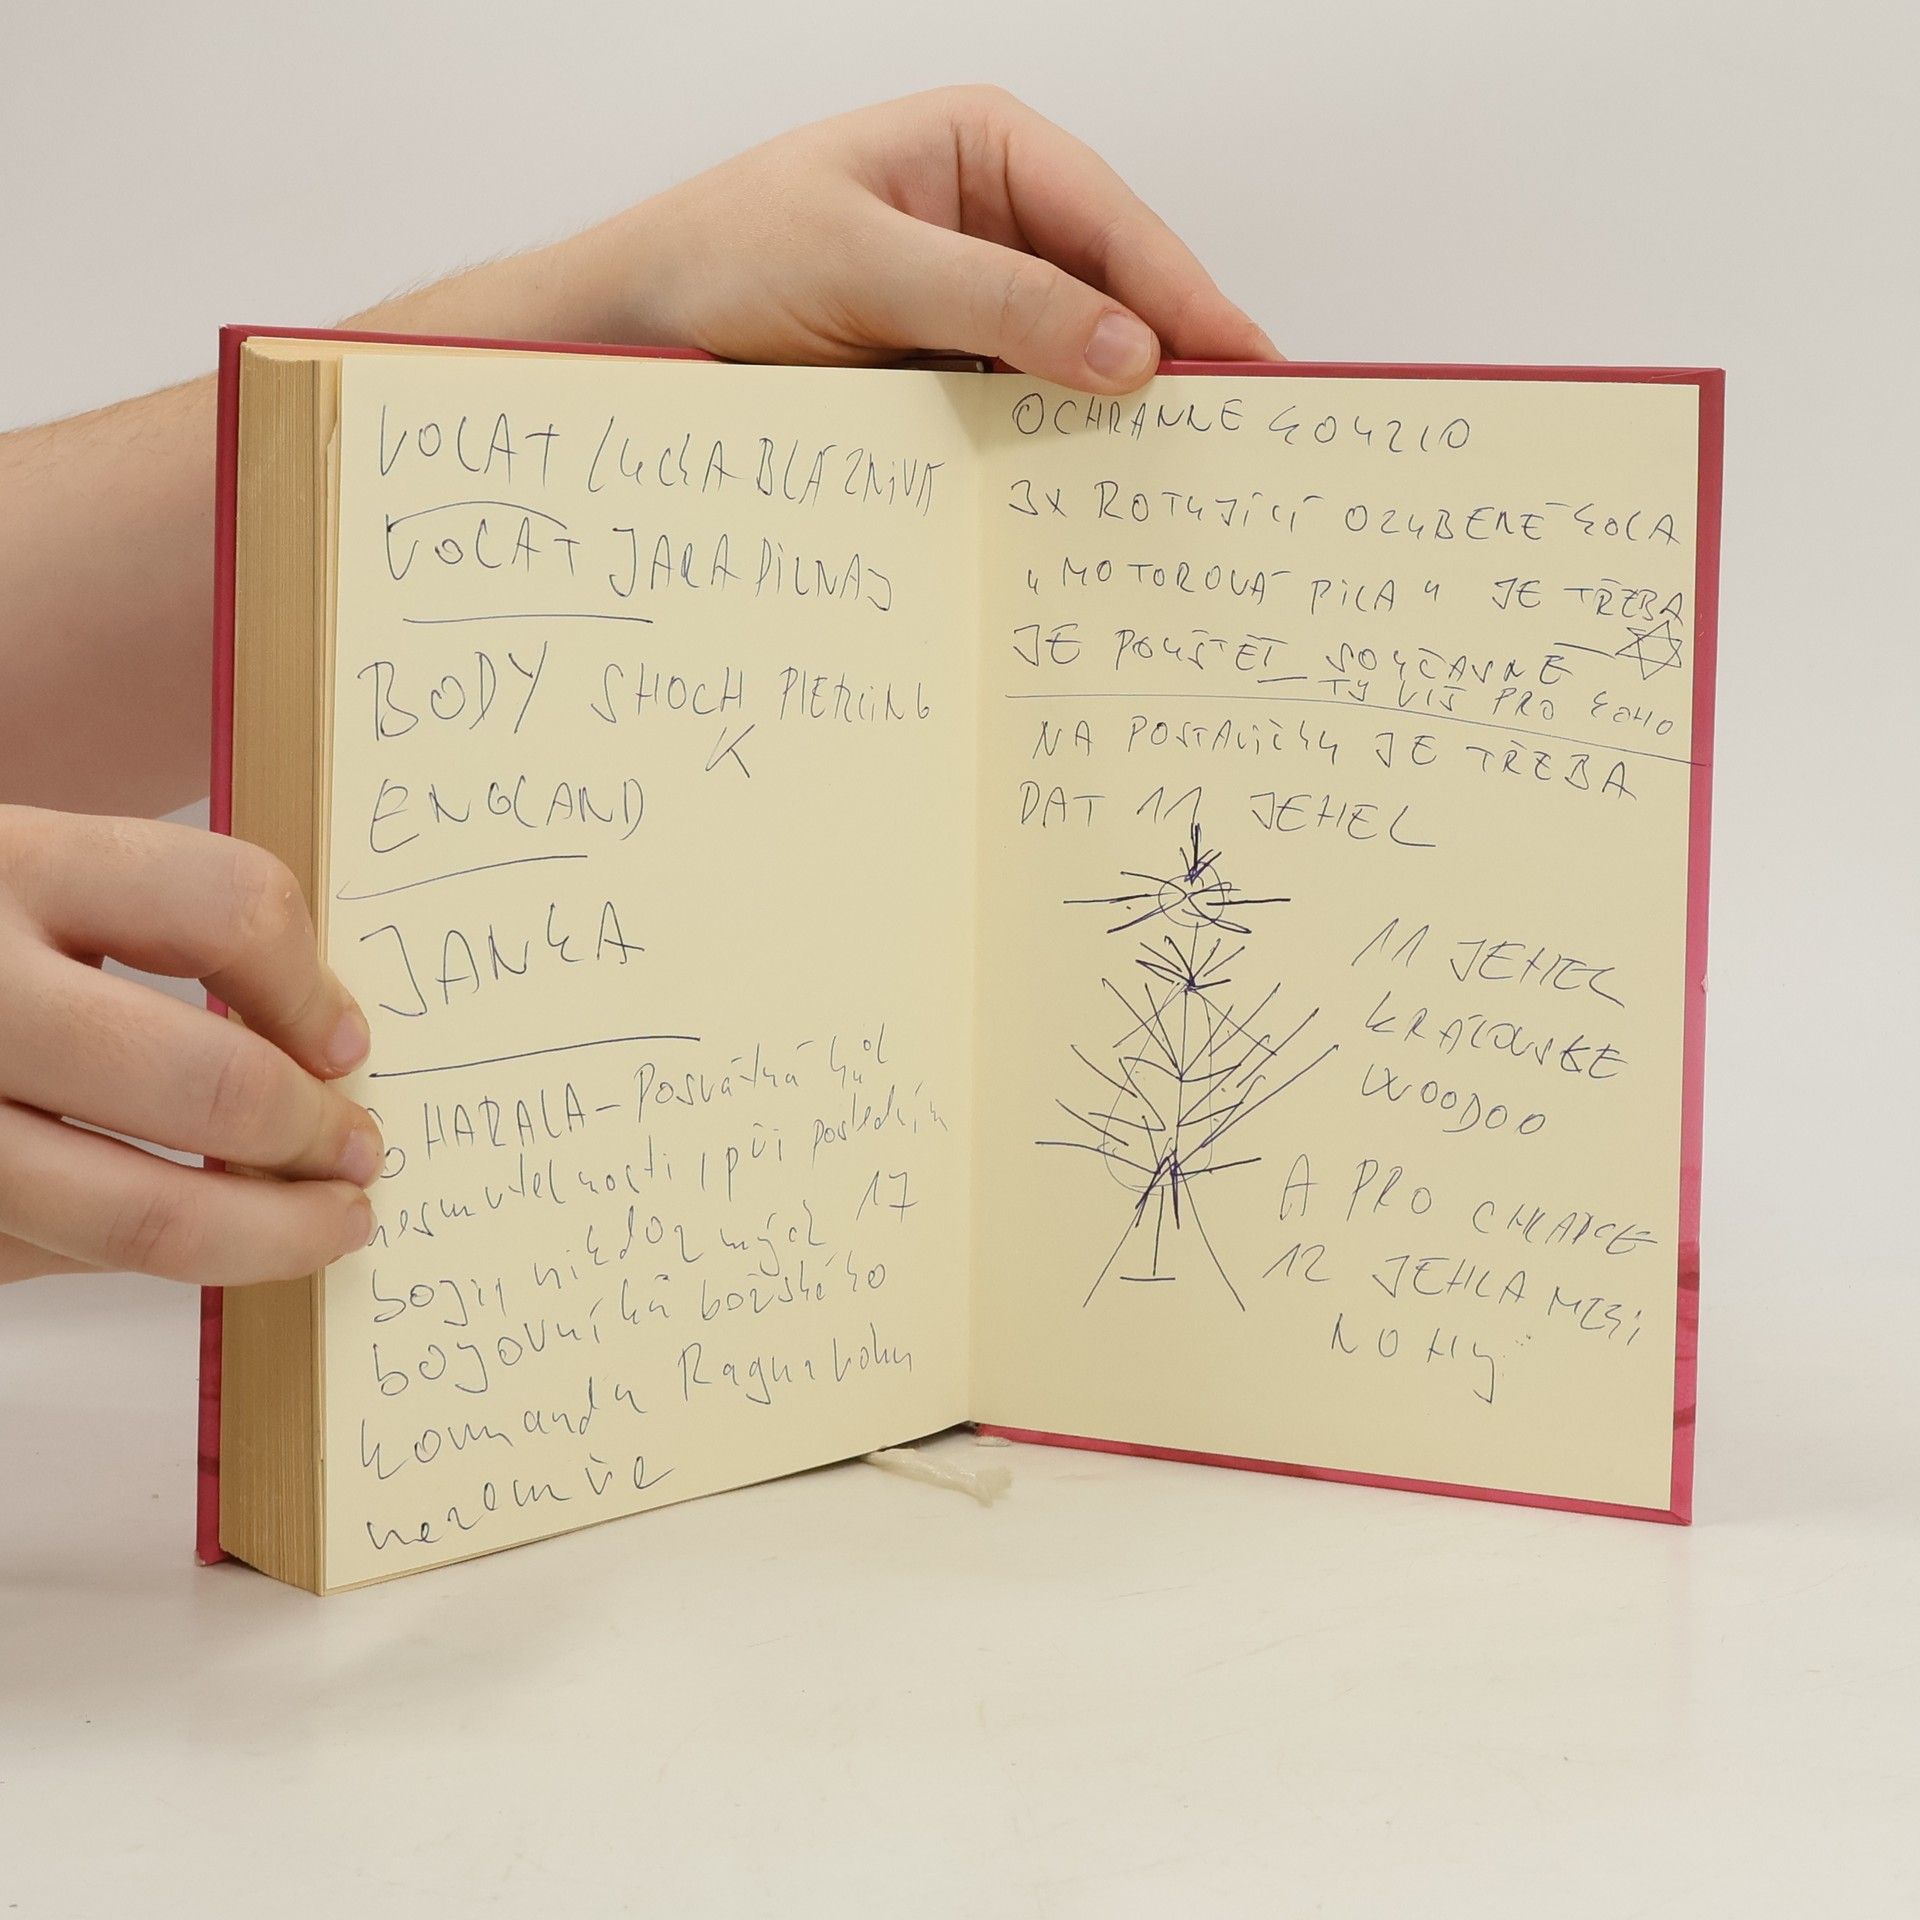 VOLAT LUCKA BLÁZNIVÁ
VOLAT JARA PILNAJ
BODY SHOCH PIERCING
K
ENGLAND
JANKA
HARALA - Posvátná hůl
nesmrtelnosti, při posledním
boji, nikdoz mých 17
bojovníků božského
komanda Ragnaroku
nezemře
OCHRANNE KOUZLO
3X ROTUJÍCÍ OZUBENÉ KOLA
"MOTOROVÁ PILA" JE TŘEBA
JE POUŠTĚT SOUČASNĚ
TY VÍŠ PRO KOHO
NA POSTAVIČKU JE TŘEBA
DAT 11 JEHEL
11 JEHEL
KRÁLOVSKE
WOODOO
A PRO CHLAPCE
12 JEHLA MEZI
NOHY